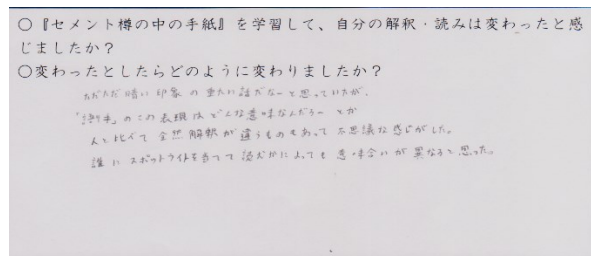 ○『セメント樽の中の手紙』を学習して、自分の解釈・読みは変わったと感
じましたか？
○変わったとしたらどのように変わりましたか？
ただただ暗い印象の重たい話だなーと思っていたが、
のこの表現はどんな意味なんだろー とか
人と比べて全然解釈が違うものもあって不思議な感じがした。
誰にスポットライトを当てて読むかによっても意味合いが異なると思った。